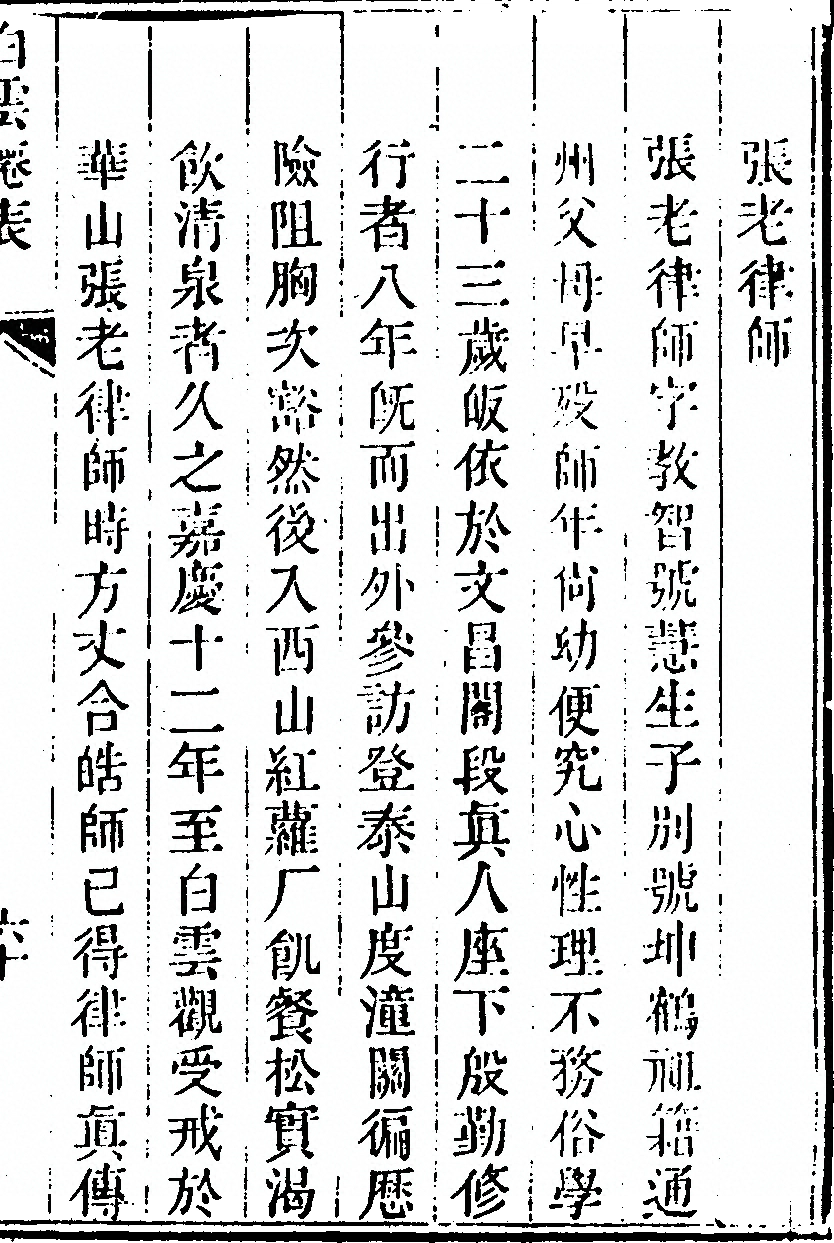 張老律師
張老律師字教智號慧生子別號坤鶴祖籍通
州父母早歿師年尚幼便究心性理不務俗學
二十三歲皈依於文昌閣段眞人座下殷勤修
行者八年旣而出外參訪登泰山度潼關徧歷
險阻胸次豁然後入西山紅蘿厂飢餐松實渴
飲清泉者久之嘉慶十二年至白雲觀受戒於
華山張老律師時方丈合皓師已得律師眞傳
白雲僊表
六十